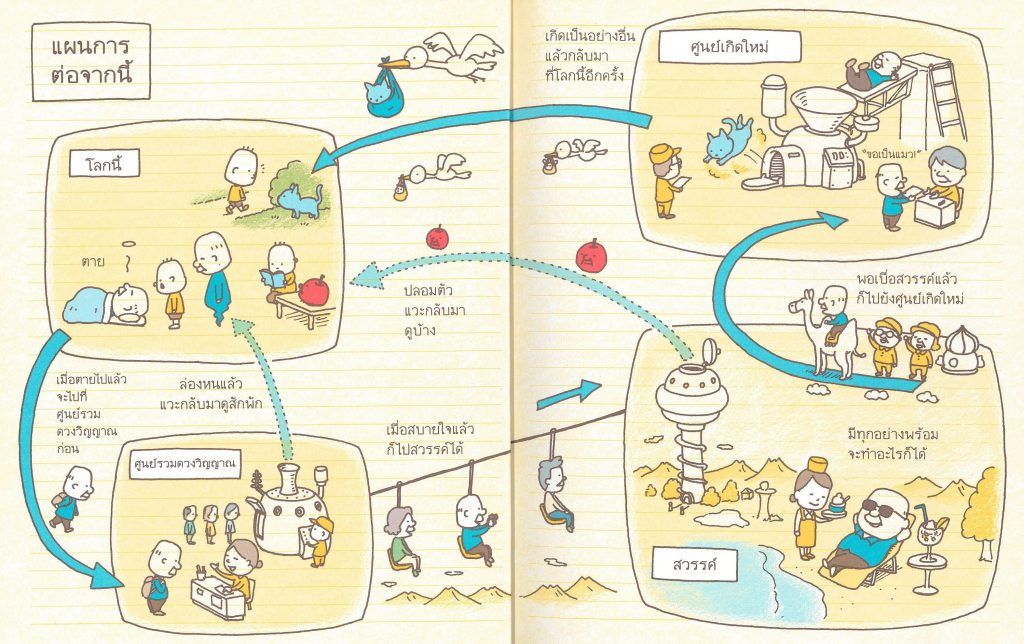 แผนการ
ต่อจากนี้
โลกนี้
ตาย
เมื่อตายไปแล้ว
จะไปที่
ศูนย์รวม
ดวงวิญญาณ
ก่อน
ล่องหนแล้ว
แวะกลับมาดูสักพัก
ศูนย์รวมดวงวิญญาณ
ปลอมตัว
แวะกลับมา
ดูบ้าง
เมื่อสบายใจแล้ว
ก็ไปสวรรค์ได้
เกิดเป็นอย่างอื่น
แล้วกลับมา
ที่โลกนี้อีกครั้ง
ศูนย์เกิดใหม่
"ขอเป็นแมว!"
พอเบื่อสวรรค์แล้ว
ก็ไปยังศูนย์เกิดใหม่
มีทุกอย่างพร้อม
จะทำอะไรก็ได้
สวรรค์